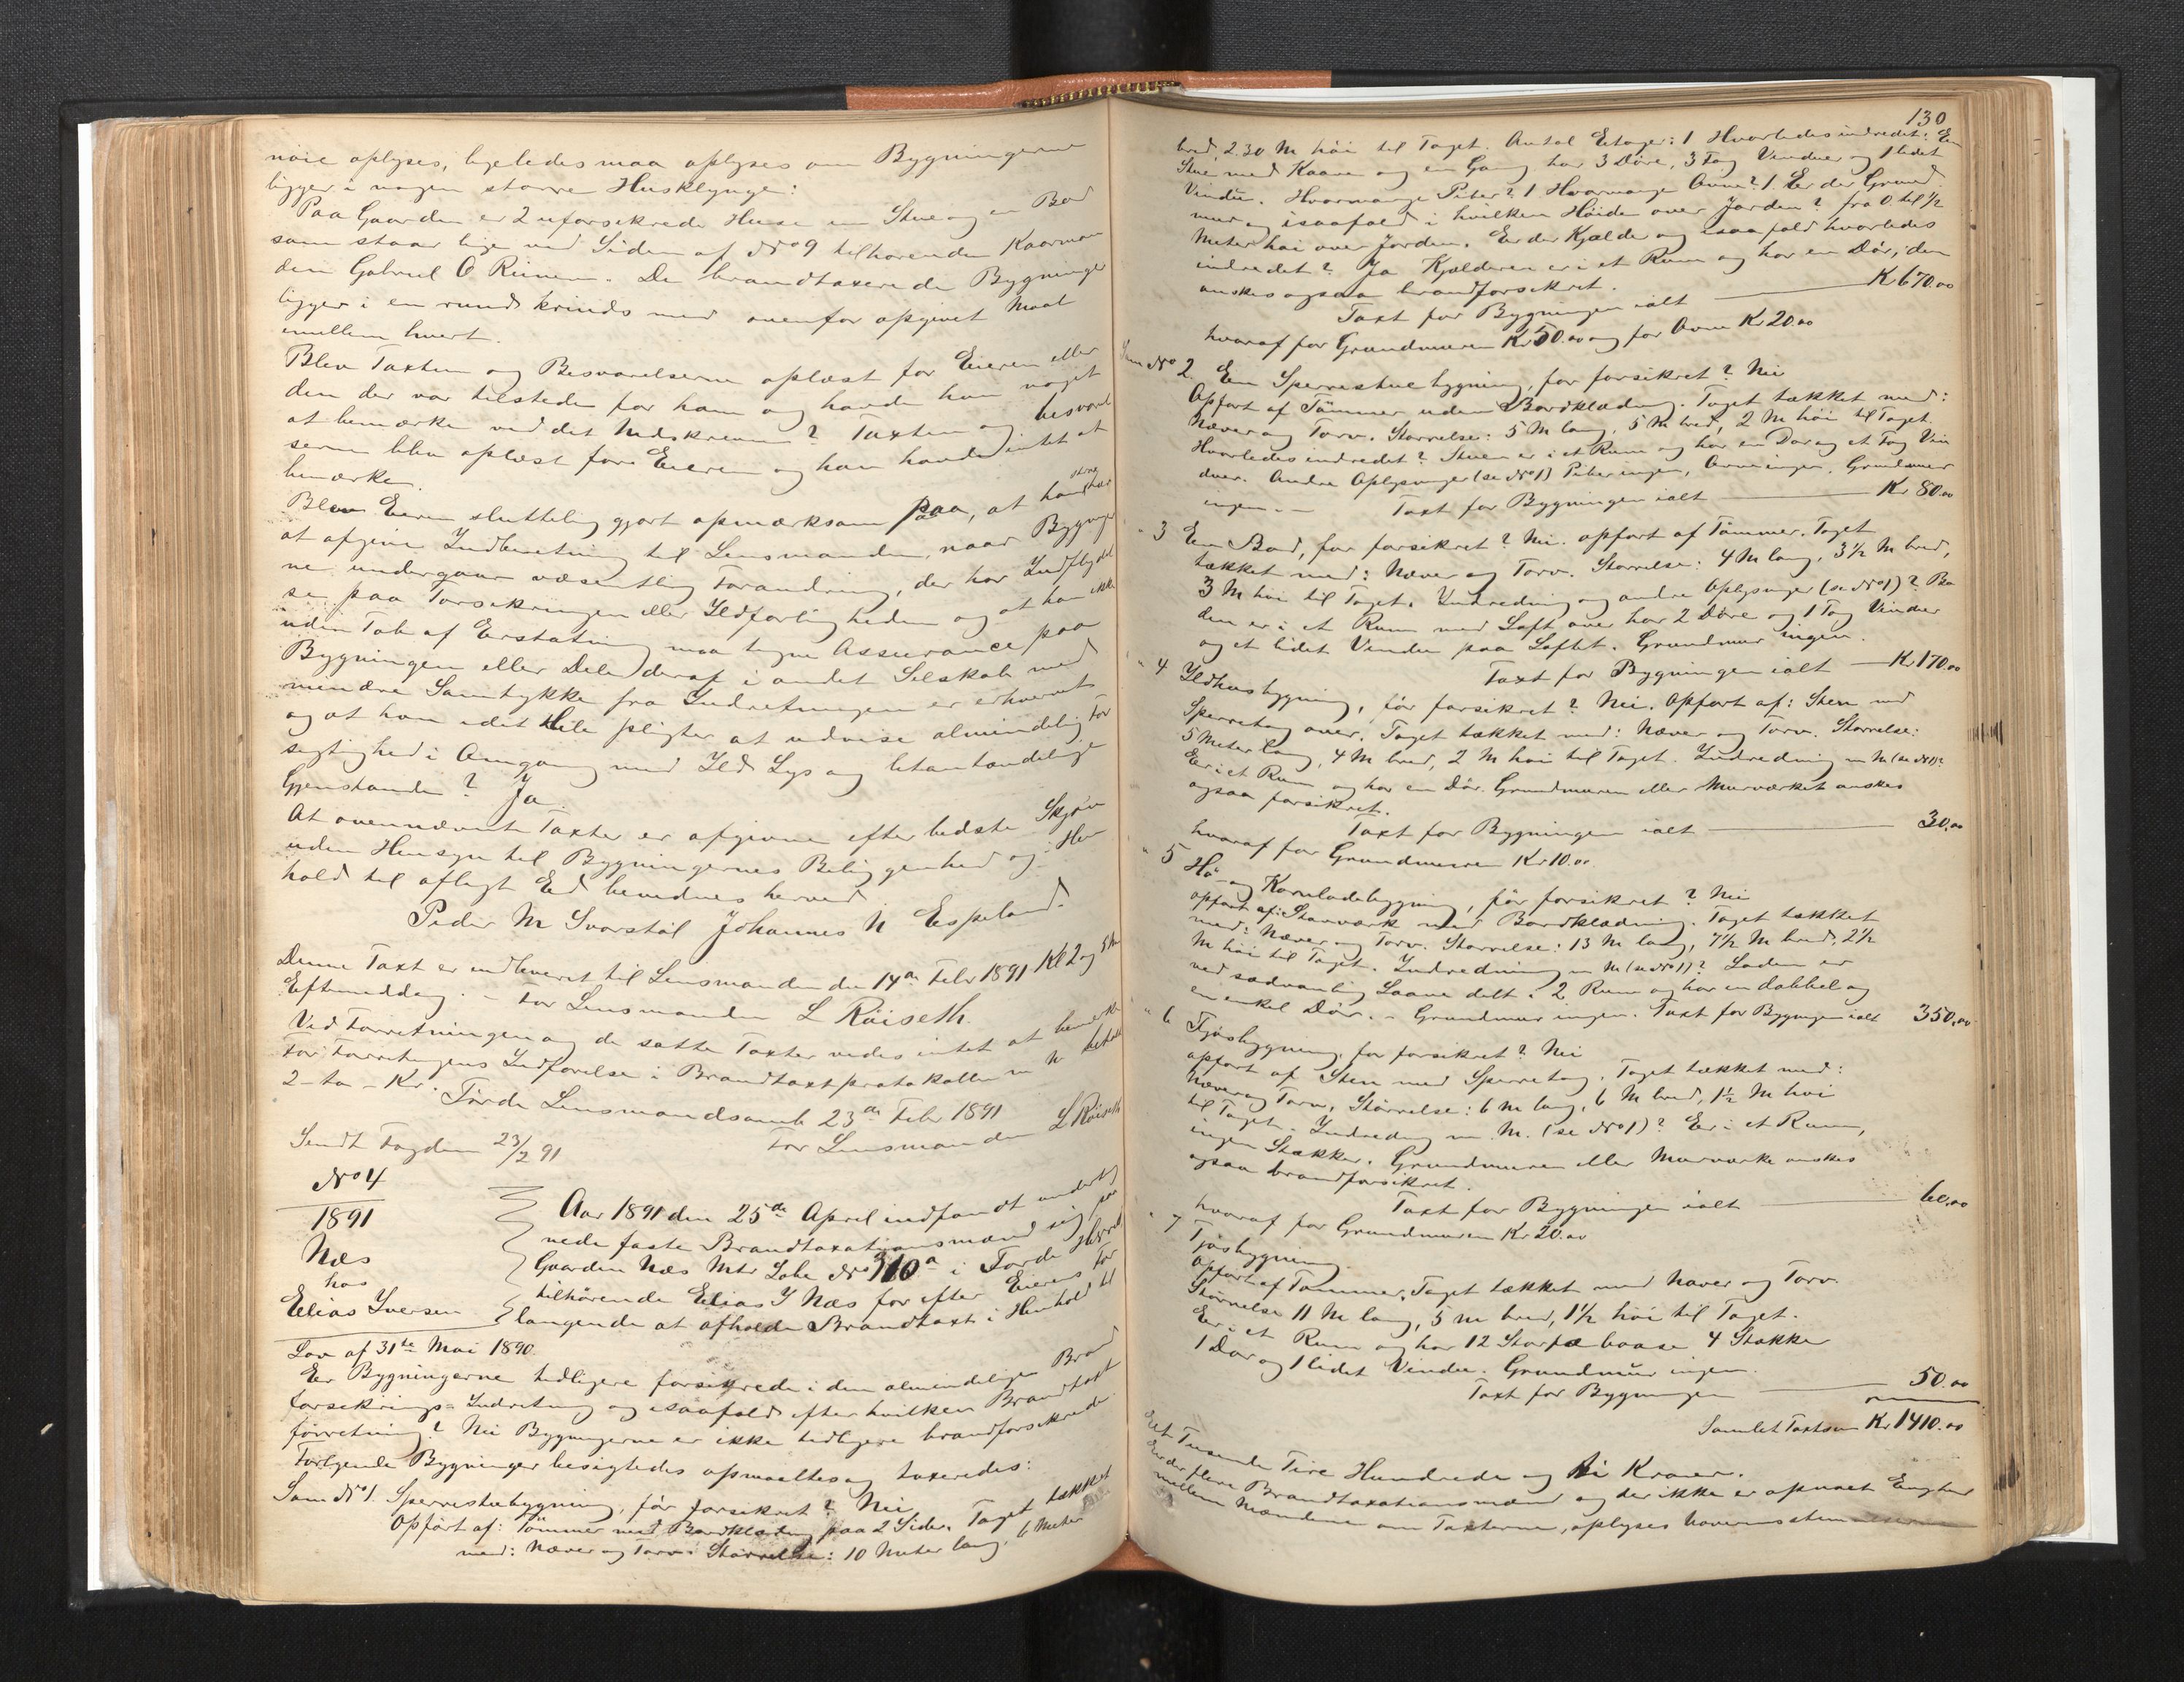 nöie oplyses, ligeledes maa oplyses om Bygningerne
ligger i nogen større Husklynge:
Paa Gaarden er 2 uforsikrede Huse en Stue og en Bod
som staar lige ved Siden af No 9 tilhørende Kaarman
den Gabriel O Rinnen. De brandtaxerede Bygninger
ligger i en rund krinds med ovenfor opgivet Maal
imellem hvert.
Blev Taxten og Besvarelserne oplæst for Eieren eller
den der var tilstede for ham og havde han noget
at bemærke ved det Nedskrevne? Taxten og besvarel
serne blev oplæst for Eieren og han havde intet at
bemærke.
Blev Eieren sluttelig gjort opmærksom paa, at han har
at afgive Indberetning til Lensmanden, naar Bygninger
ne undergaar væsentlig Forandring, der har Indflydel
se paa Forsikringen eller Ildfarligheden og at han ikke
uden Tab af Erstatning maa tegne Assurance paa
Bygningen eller Dele deraf i andet Selskab med
mindre Samtykke fra Indretningen er erhvervet
og at han i det Hele pligter at udvise almindelig For
sigtighed i Omgang med Ild Lys og letantændelige
Gjenstande? Ja.
At ovennævnte Taxter er afgivne efter bedste Skjøn
uden Hensyn til Bygningernes Beliggenhed og i Hen
hold til aflagt Ed bevidnes herved
Peder M Svorstöl Johannes N Espeland.
Denne Taxt er indleveret til Lensmanden den 14de Febr 1891 Kl 2 og 5 M
Eftermiddag. – For Lensmanden L Röiseth.
Ved Forretningen og de satte Taxter vides intet at bemerke
For Forretningens Indførelse i Brandtaxtprotokollen er betalt
2 – to – Kr.
Förde Lensmandsomb 23de Febr 1891
Sendt Fogden 23/2 91 For Lensmanden L Röiseth
No 4
1891
Næs
hos
Elias Iversen
Aar 1891 den 25de April indfandt underteg
nede faste Brandtaxationsmænd sig paa
Gaarden Næs Mtr Lobe No 310a i Förde Herred
tilhörende Elias I Næs for efter Eierens For
langende at afholde Brandtaxt i Henhold til
Lov af 31te Mai 1890.
Er Bygningerne tidligere forsikrede i den almindelige Brand
forsikrings-Indretning og isaafald efter hvilken Brandtaxt
forretning? Nei Bygningerne er ikke tidligere brandforsikrede
Følgende Bygninger besigtedes opmaaltes og taxeredes:
Som No 1. Sperrestuebygning, før forsikret? Nei
Opført af: Tömmer med Bordklædning paa 2 Sider. Taget tækket
med: Næver og Torv. Större­lse: 10 Meter lang, 6 Meter
130
bred, 2.30 M höi til Taget. Antal Etager: 1 Hvorledes indredet: En
Stue med Kaave og en Gang har 3 Döre, 3 Fag Vinduer og 1 lidet
Vindu. Hvormange Piber? 1 Hvormange Ovne? 1. Er der Grund
mur og isaafald i hvilken Höide over Jorden? fra 0 til 1/2
Meter höi over Jorden. Er der Kjælder og isaafald hvorledes
indredet? Ja Kjælderen er i et Rum og har en Dör, den
önskes ogsaa brandforsikret.
Taxt for Bygningen ialt Kr 670.00
hvoraf for Grundmuren Kr 50.00 og for Ovne Kr 20.00
Som No 2. En Sperrestuebygning, før forsikret? Nei
Opført af Tömmer uden Bordklædning. Taget tækket med:
Næver og Torv. Størrelse: 5 M lang, 5 M bred, 2 M höi til Taget.
Hvorledes indredet? Stuen er i et Rum og har en Dør og et Fag Vin
duer. Andre Oplysninger (se No 1) Piber ingen, Ovne ingen, Grundmur
ingen. – Taxt for Bygningen ialt Kr 80.00
" 3 En Bod, før forsikret? Nei. opført af Tömmer. Taget
tækket med: Næver og Torv. Størrelse: 4 M lang, 3 1/2 M bred,
3 M höi til Taget. Indredning og andre Oplysninger (se No 1)? Bo
den er i et Rum med Loft over har 2 Döre og 1 Fag Vinduer
og et lidet Vindu paa Loftet. Grundmur ingen.
Taxt for Bygningen ialt Kr 170.00
" 4 Ildhusbygning, för forsikret? Nei. Opført af: Sten med
Sperretag over. Taget tækket med: Næver og Torv. Størrelse:
5 Meter lang, 4 M bred, 2 M höi til Taget. Indredning m M (se No 1)?
Er i et Rum og har en Dör. Grundmuren eller Murværket önskes
ogsaa forsikret.
Taxt for Bygningen ialt 30.00
hvoraf for Grundmuren Kr 10.00
" 5 Hö- og Kornladebygning, før forsikret? Nei
opført af: Stavværk med Bordklædning. Taget tækket
med: Næver og Torv. Størrelse: 13 M lang, 7 1/2 M bred, 2 1/2
M höi til Taget. Indredning m M (se No 1)? Laden er
ved sædvanlig Laave delt i 2 Rum og har en dobbel og
en enkel Dör. – Grundmur ingen. Taxt for Bygningen ialt 350.00
" 6 Fjösbygning, før forsikret? Nei
opført af Sten med Sperretag. Taget tækket med:
Næver og Torv. Störrelse: 6 M lang, 6 M bred, 1 1/2 M höi
til Taget. Indredning m. M. (se No 1)? Er i et Rum,
ingen Stakker. Grundmuren eller Murværke önskes
ogsaa brandforsikret.
Taxt for Bygningen ialt 60.00
hvoraf for Grundmuren Kr 20.00
" 7 Fjösbygning.
Opført af Tömmer. Taget tækket med Næver og Torv.
Störrelse 11 M lang, 5 M bred, 1 1/2 höi til Taget.
Er i et Rum og har 12 Storfæbaase 4 Stakke
1 Dør og 1 lidet Vindu. Grundmur ingen.
Taxt for Bygningen 50.00
Samlet Taxtsum Kr 1410.00
Et Tusende Fire Hundrede og Ti Kroner.
Er der flere Brandtaxationsmænd og der ikke er opnaaet Enighed
mellem Mændene om Taxterne, oplyses